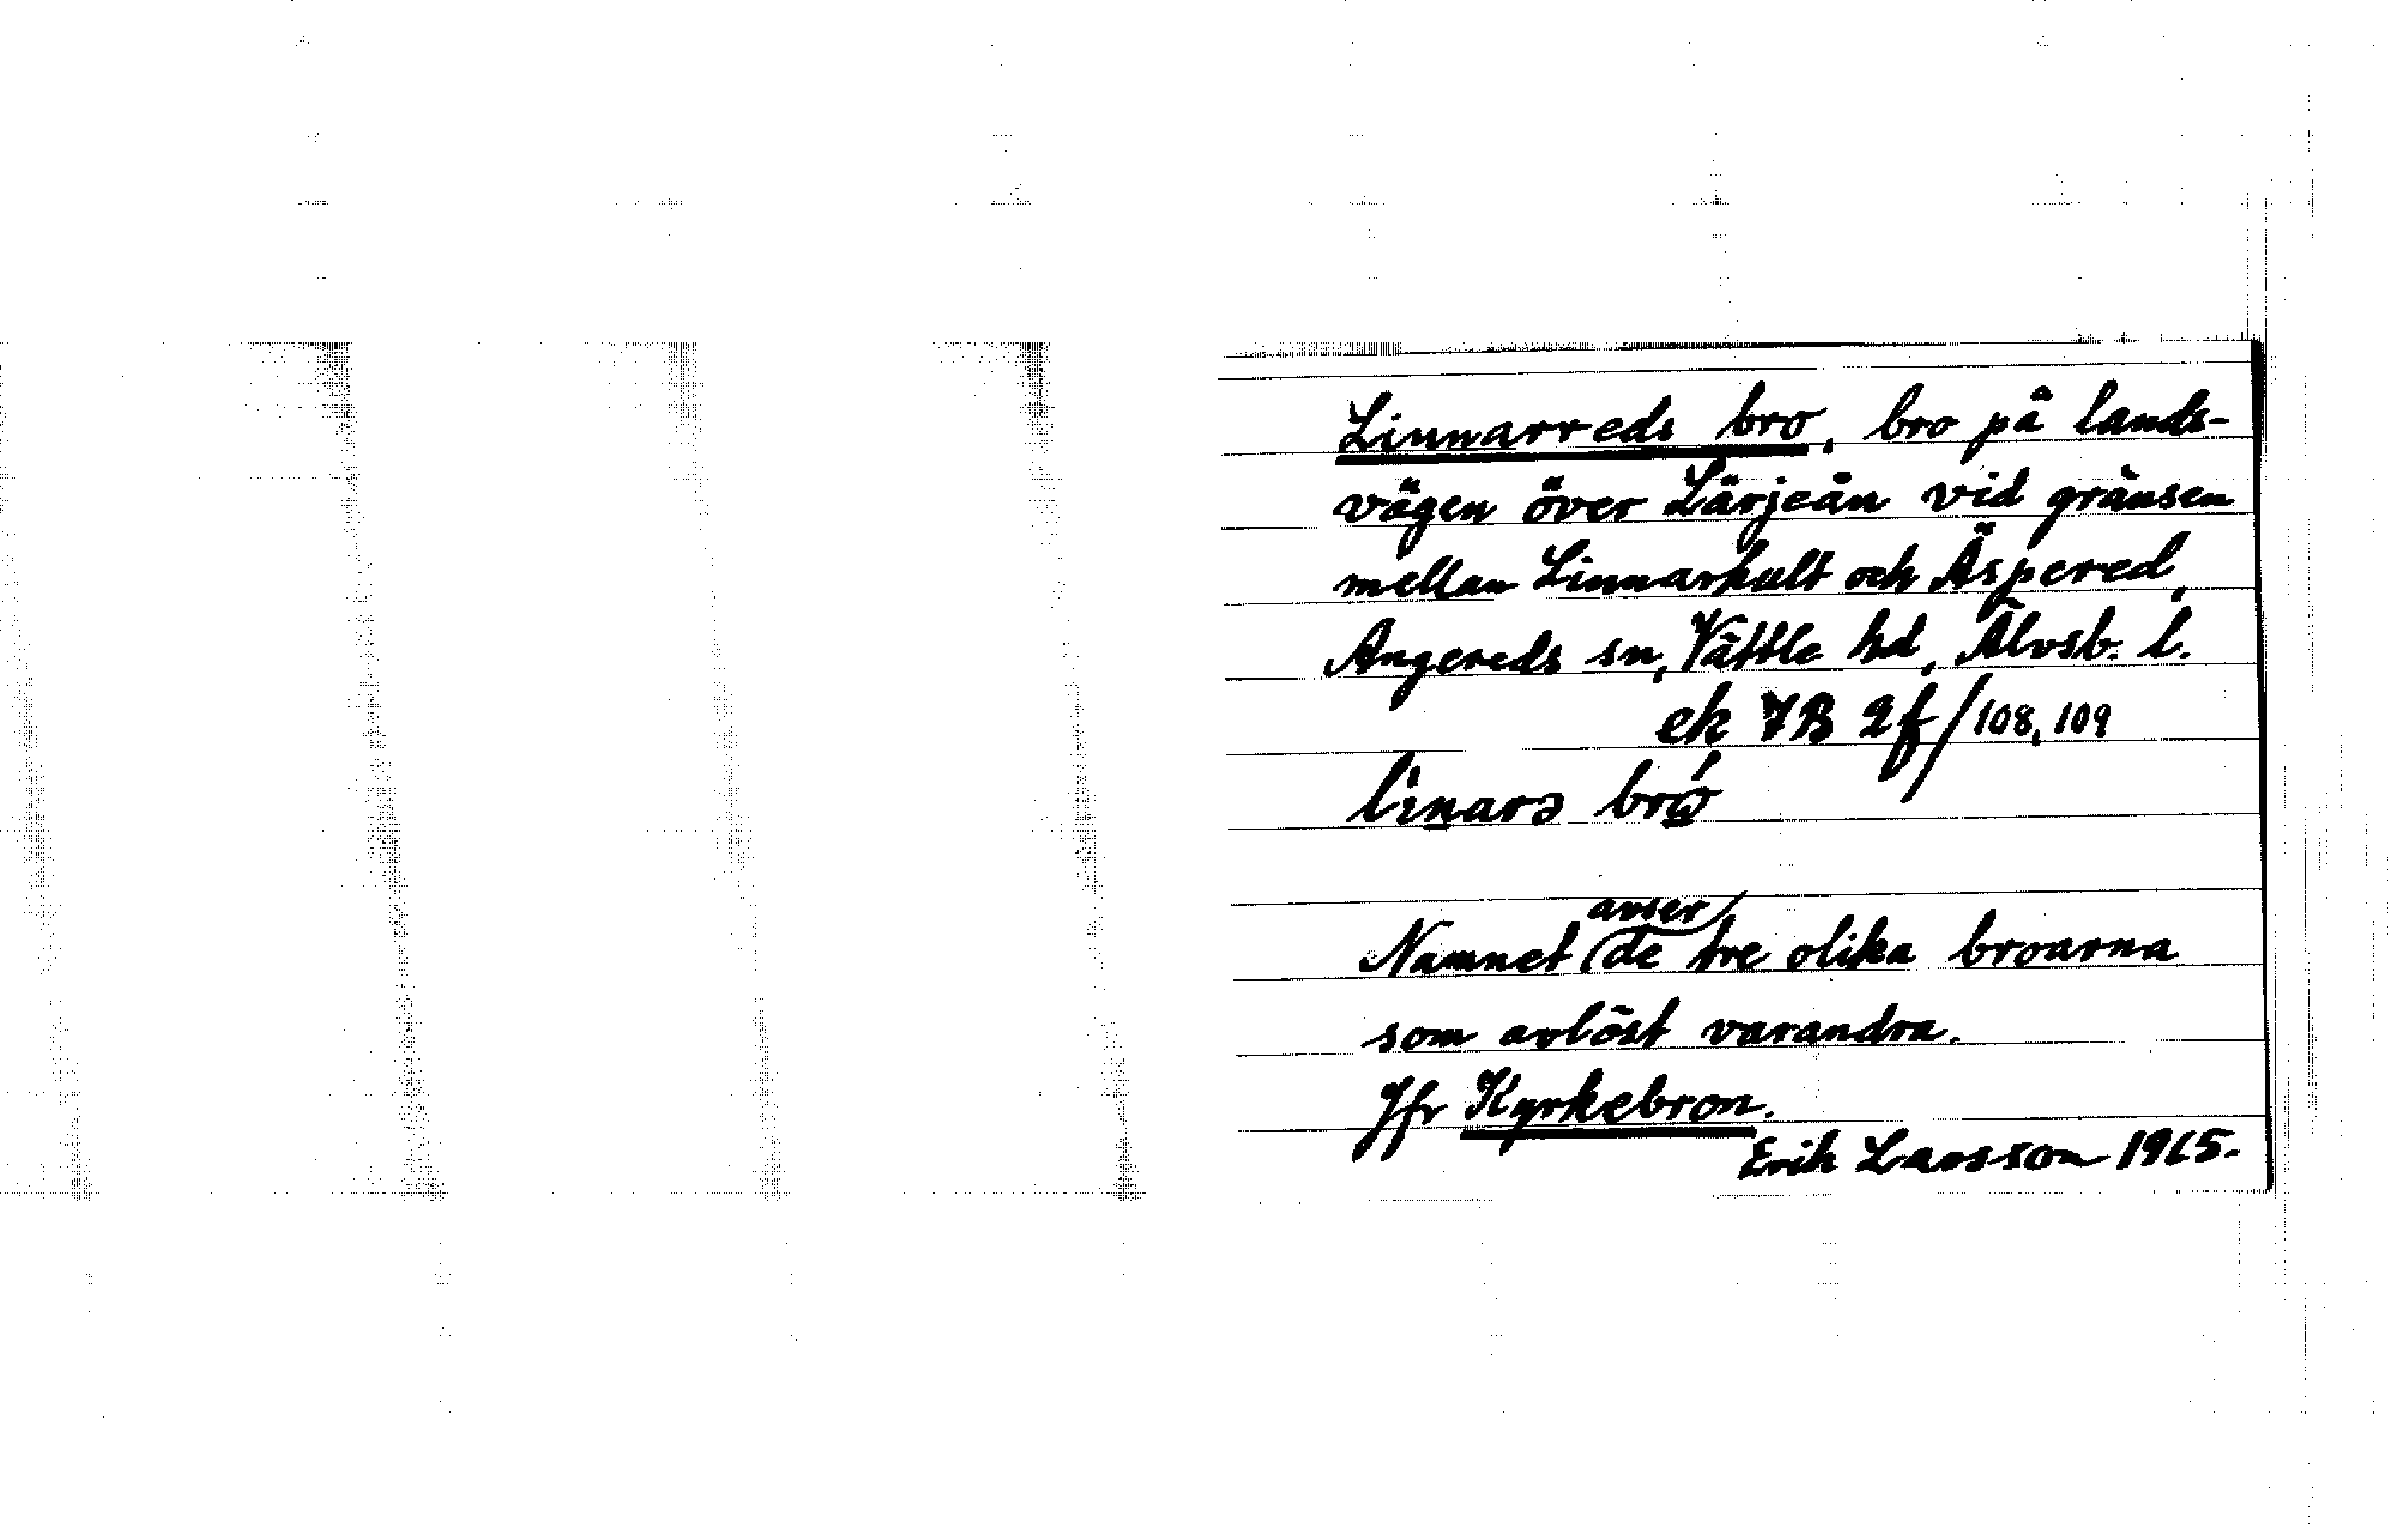 Linnarreds bro, bro på lands-
vägen över Lärjeån vid gränsen
mellan Linnarhult och Äspered,
Angereds sn, Vättle hd, Älvsb. l.
ek 7B 2f/108, 109
linarə brò
Namnet avser de tre olika broarna
som avlöst varandra.
Jfr Kyrkebron.
Erik Larsson 1965.